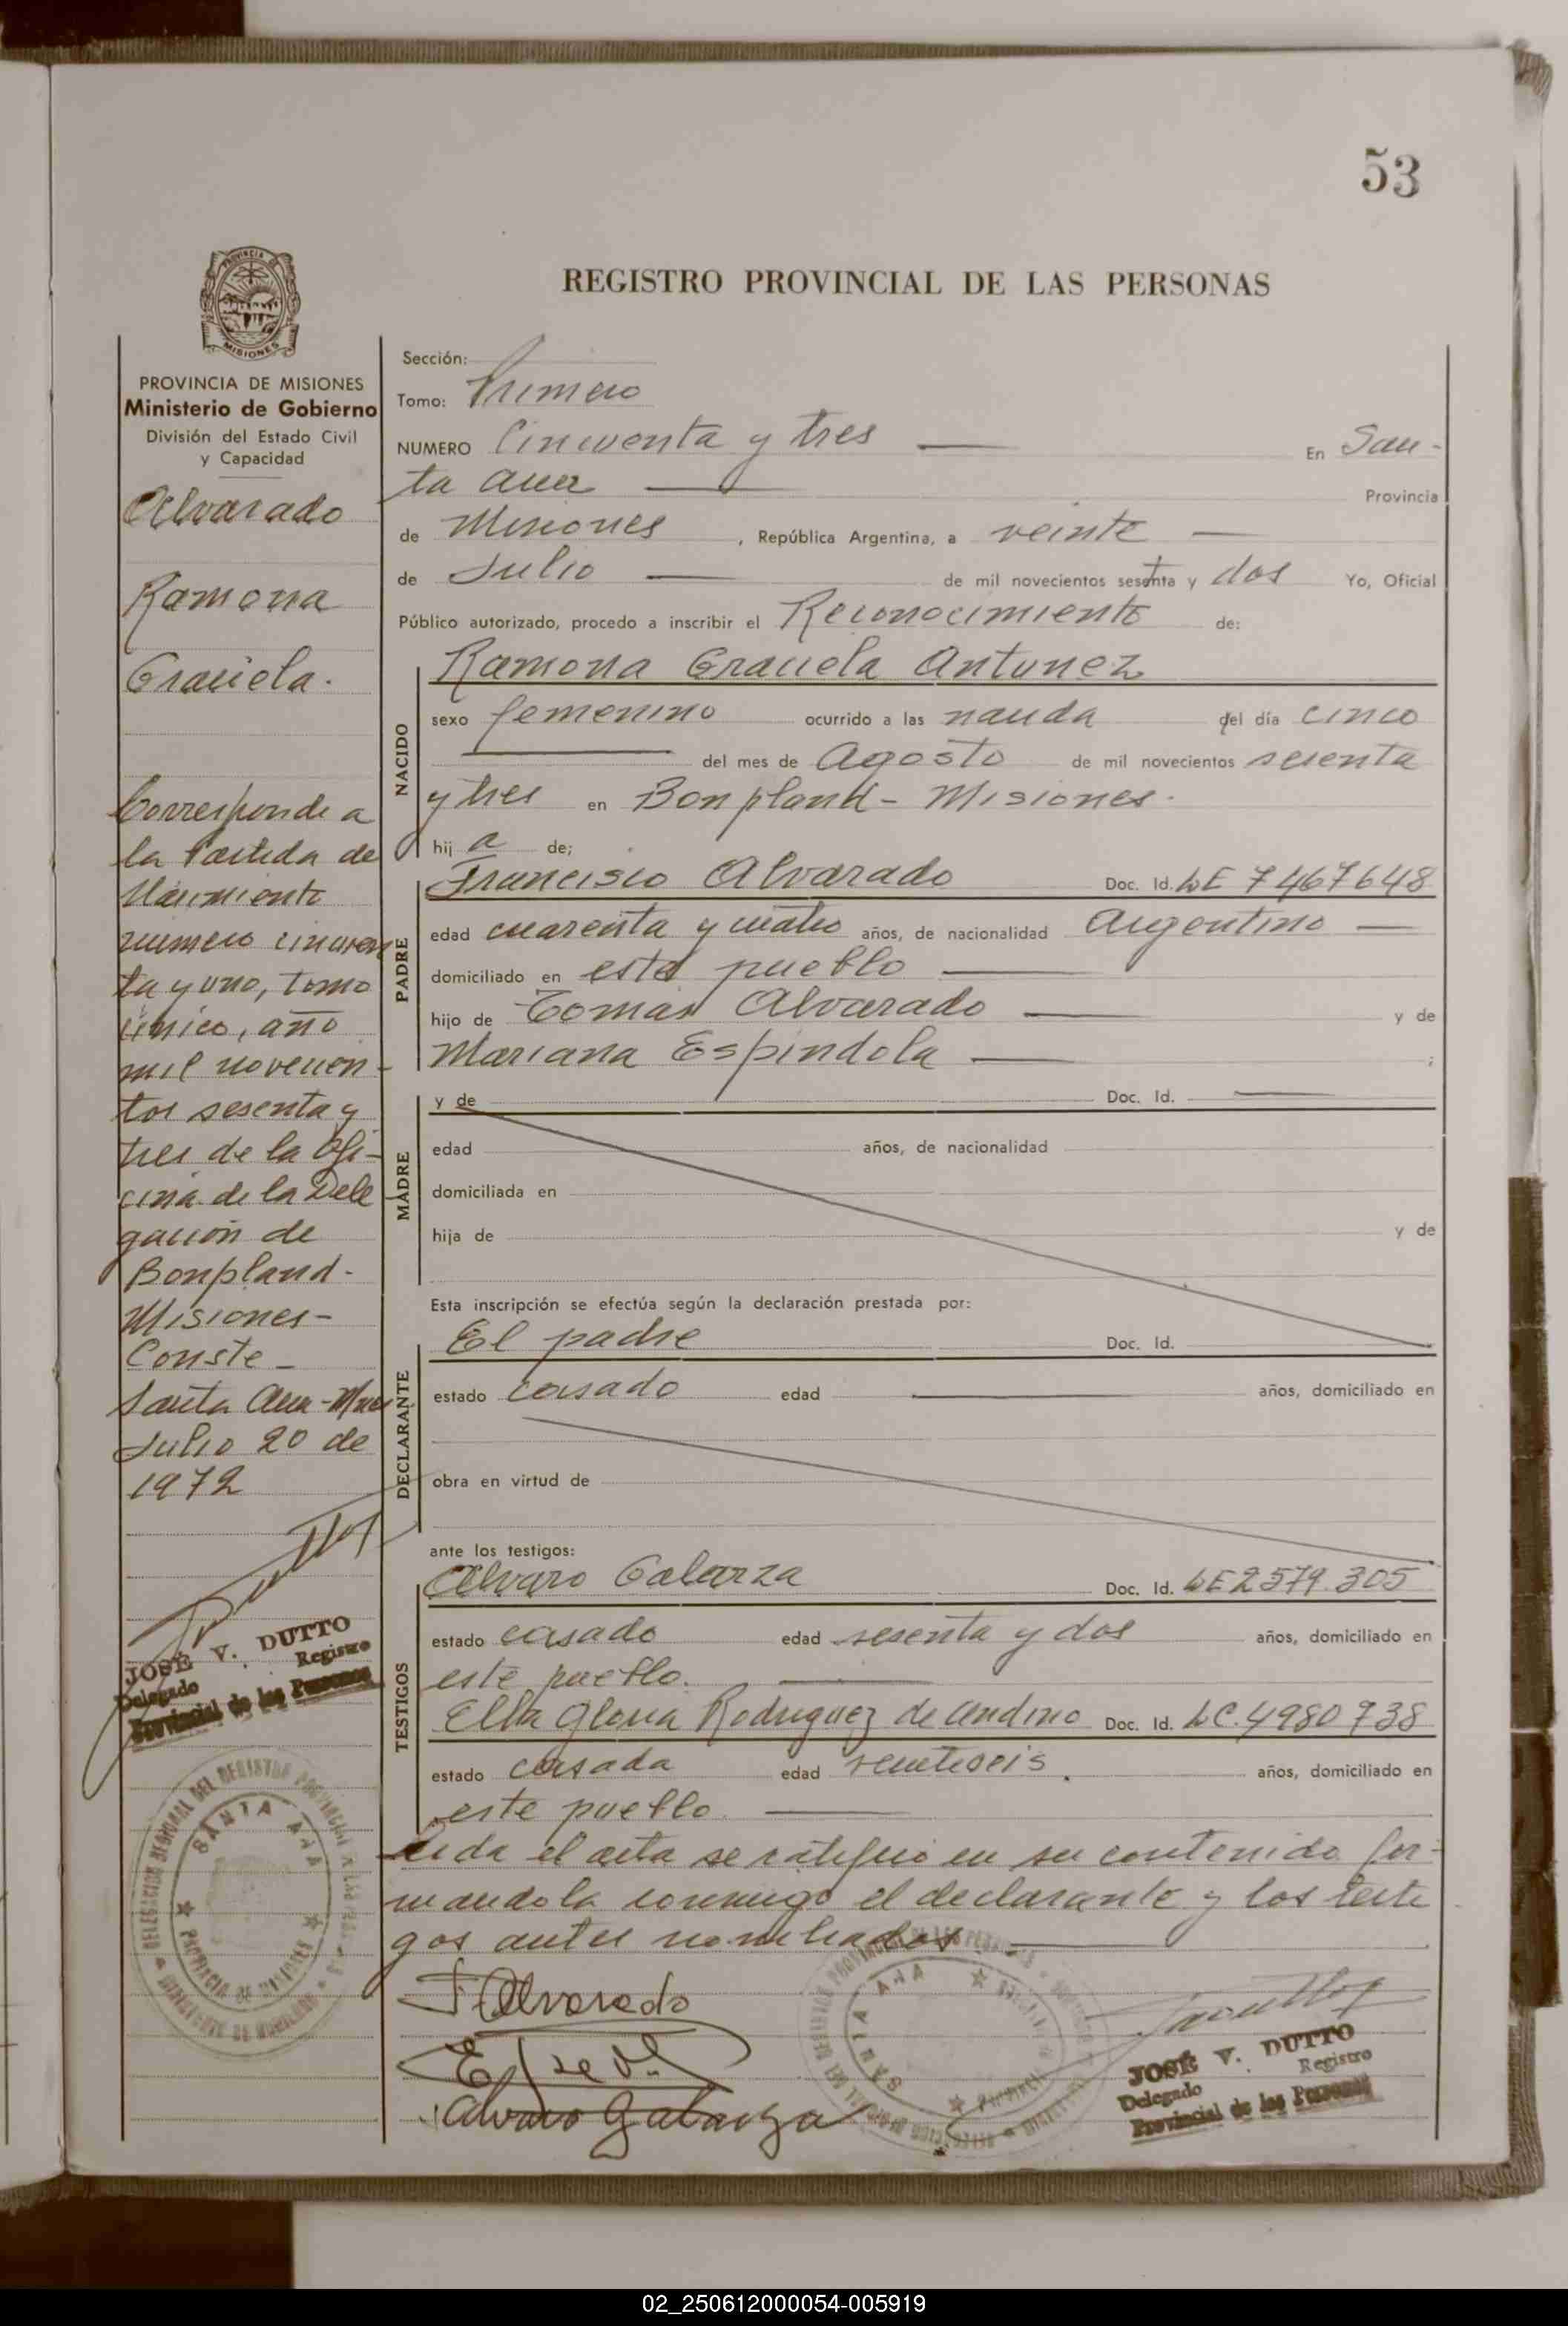 53
REGISTRO PROVINCIAL DE LAS PERSONAS
PROVINCIA DE MISIONES
Ministerio de Gobierno
División del Estado Civil
y Capacidad
Alvarado
Ramona
Graciela.
Corresponde a
la Partida de
Nacimiento
numero cincuen
ta y uno, tomo
único, año
mil novecien-
tos sesenta y
tres de la Ofi-
cina de la Dele
gación de
Bonpland-
Misiones-
Conste-
Santa Ana-Mnes
Julio 20 de
1972
JOSÉ V. DUTTO
Delegado Registro
Provincial de las Personas
Sección:
Tomo: Primero
NUMERO Cincuenta y tres En San-
ta Ana Provincia
de Misiones, República Argentina, a veinte
de Julio de mil novecientos setenta y dos Yo, Oficial
Público autorizado, procedo a inscribir el Reconocimiento de:
Ramona Graciela Antunez
NACIDO
sexo femenino ocurrido a las nacida del día cinco
del mes de Agosto de mil novecientos sesenta
y tres en Bonpland - Misiones.
hij a de;
PADRE
Francisco Alvarado Doc. Id. LE 7467648
edad cuarenta y cuatro años, de nacionalidad Argentino
domiciliado en este pueblo
hijo de Tomas Alvarado y de
Mariana Espindola ;
MADRE
y de Doc. Id.
edad años, de nacionalidad
domiciliada en
hija de y de
Esta inscripción se efectúa según la declaración prestada por:
DECLARANTE
El padre Doc. Id.
estado casado edad años, domiciliado en
obra en virtud de
ante los testigos:
TESTIGOS
Alvaro Galarza Doc. Id. LE 2579.305
estado casado edad sesenta y dos años, domiciliado en
este pueblo.
Elba Gloria Rodriguez de Andino Doc. Id. LC.4980738
estado casada edad veintiseis. años, domiciliado en
este pueblo.
Leida el acta se ratificó en su contenido fir-
mandola conmigo el declarante y los testi
gos antes nombrados.
F. Alvarado
Alvaro Galarza
SANTA ANA
PROVINCIA DE MISIONES
JOSÉ V. DUTTO
Delegado Registro
Provincial de las Personas
02_250612000054-005919